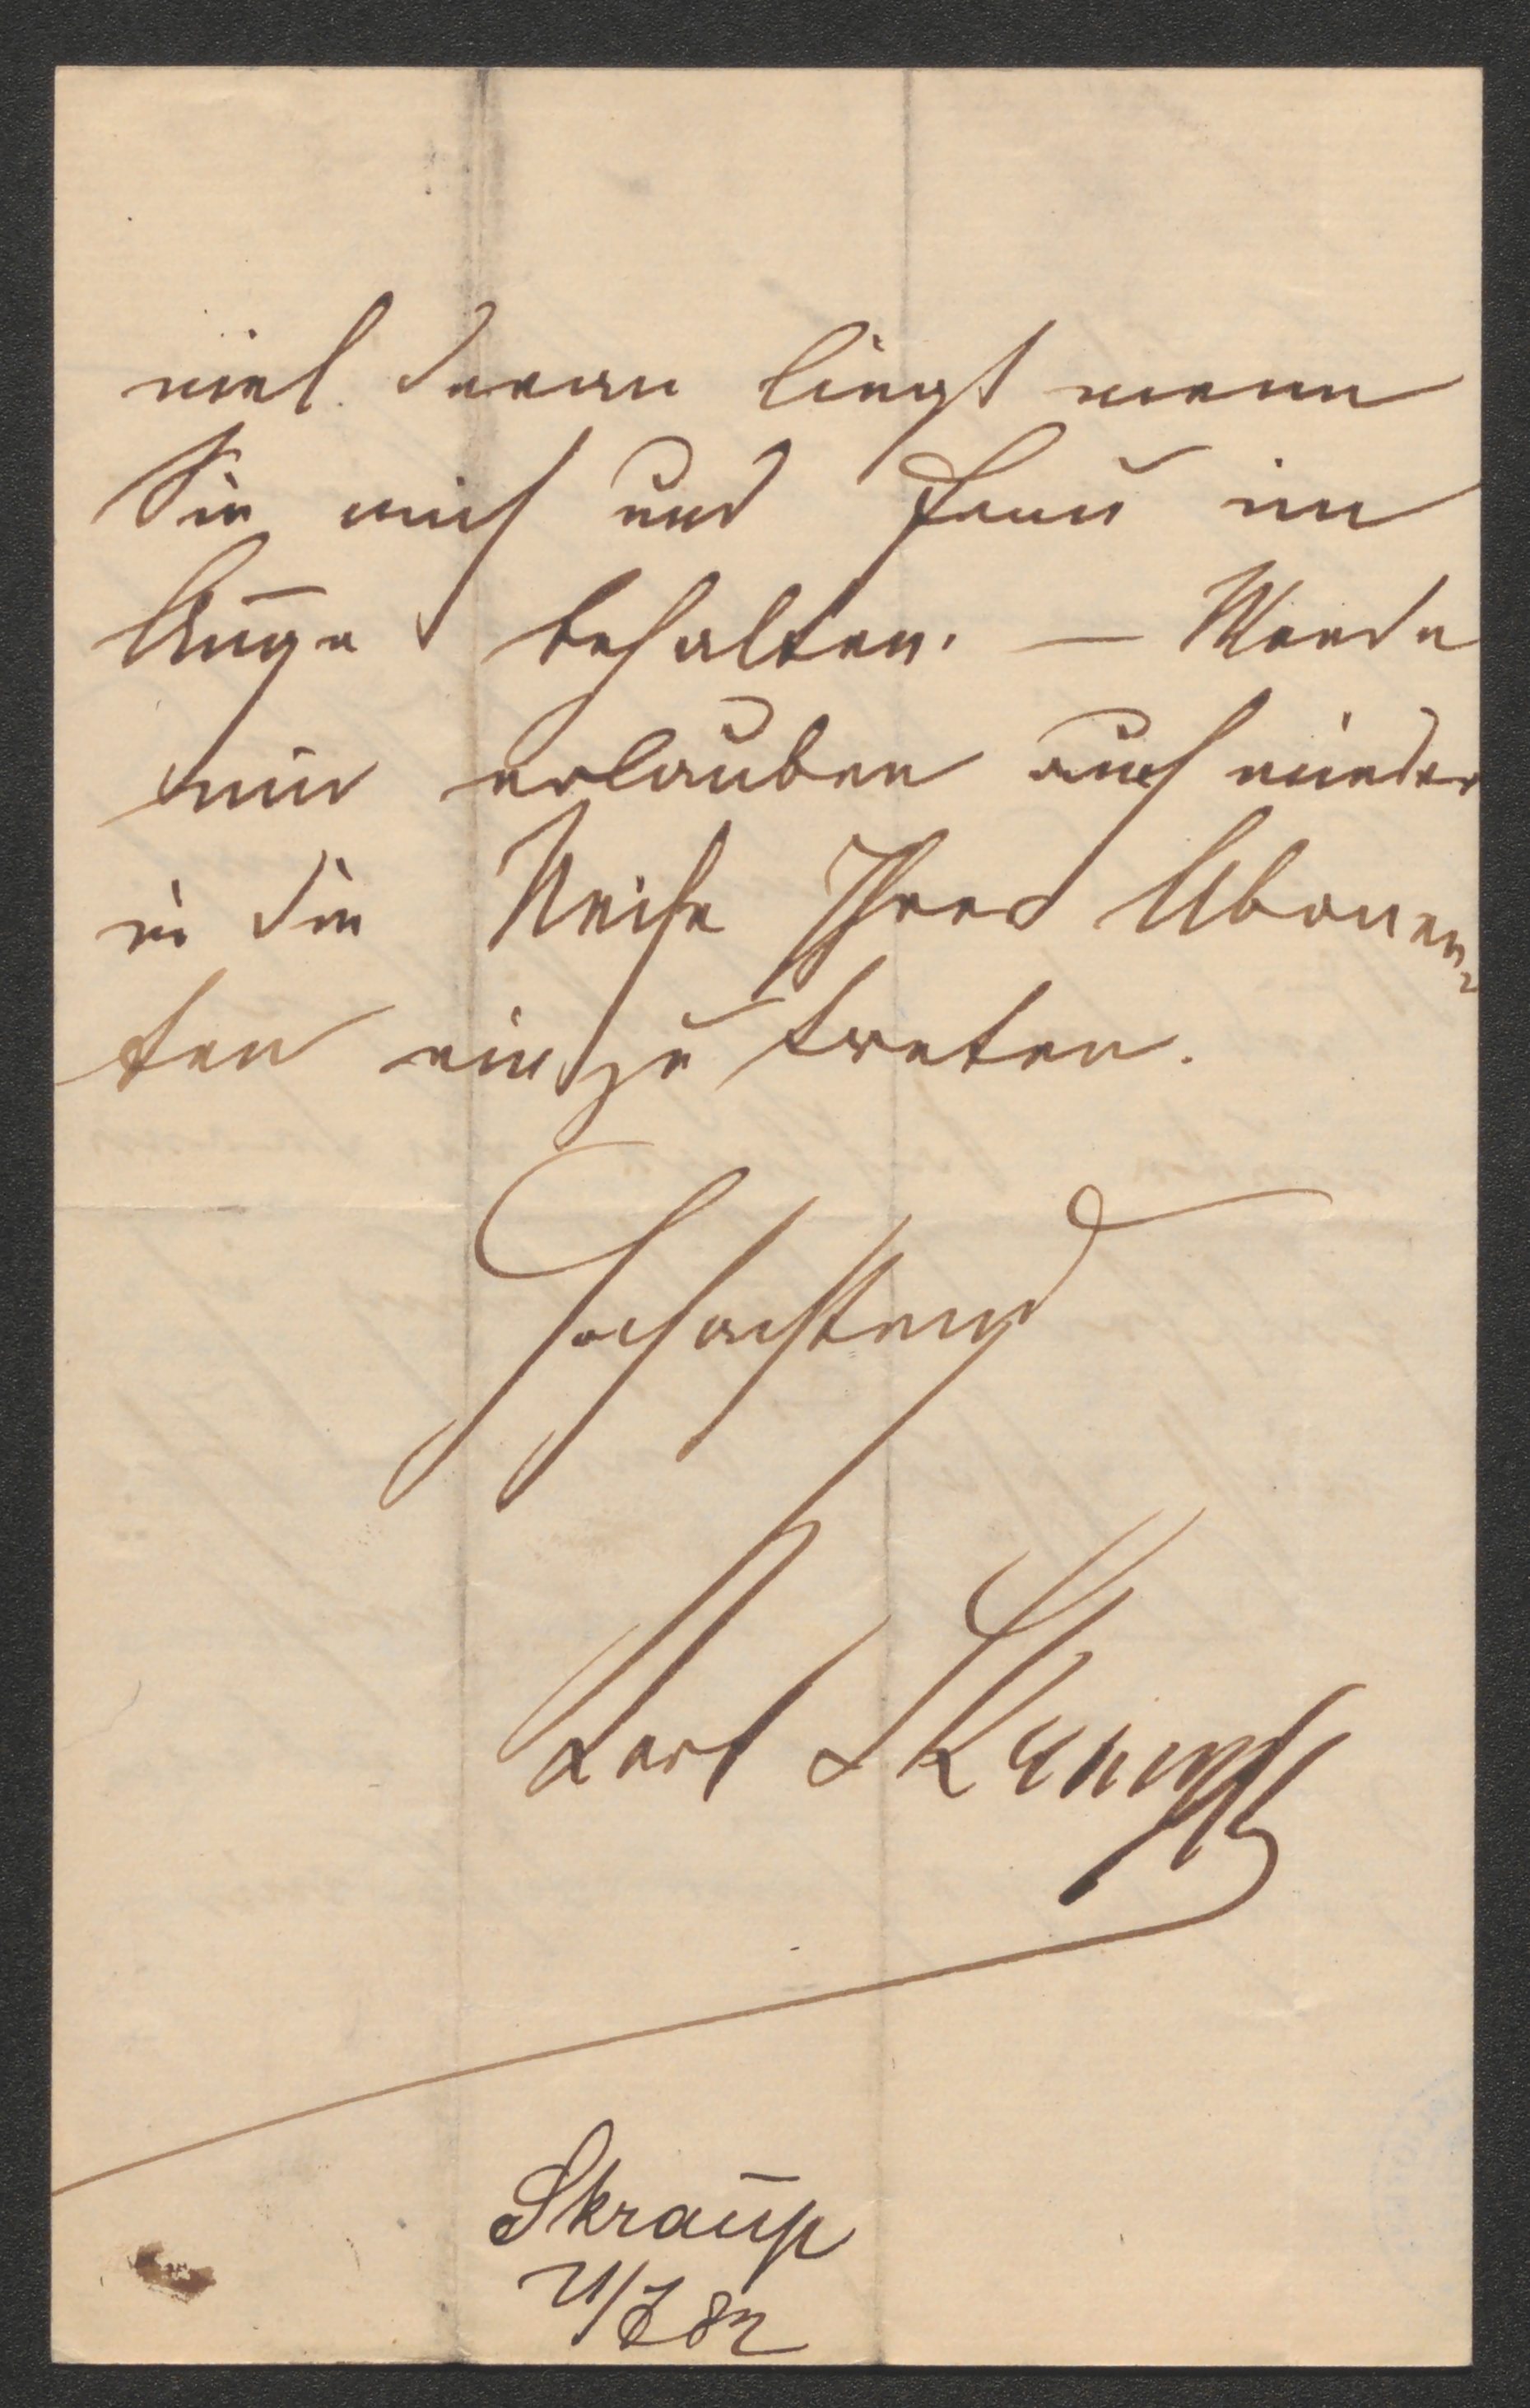 viel daran liegt wenn
Sie mich und Frau im
Auge behalten. — Werde
mir erlauben auch wieder
in die Reihe Ihrer Abonen⸗
ten einzu treten.
Hochachtend
Karl Skraup
Skraup
21/7 82